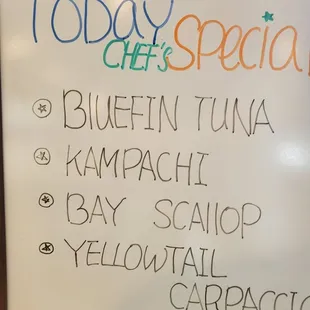 TODAY
CHEF'S SPECIAL
BLUEFIN TUNA
KAMPACHI
BAY SCALLOP
YELLOWTAIL
CARPACCIO